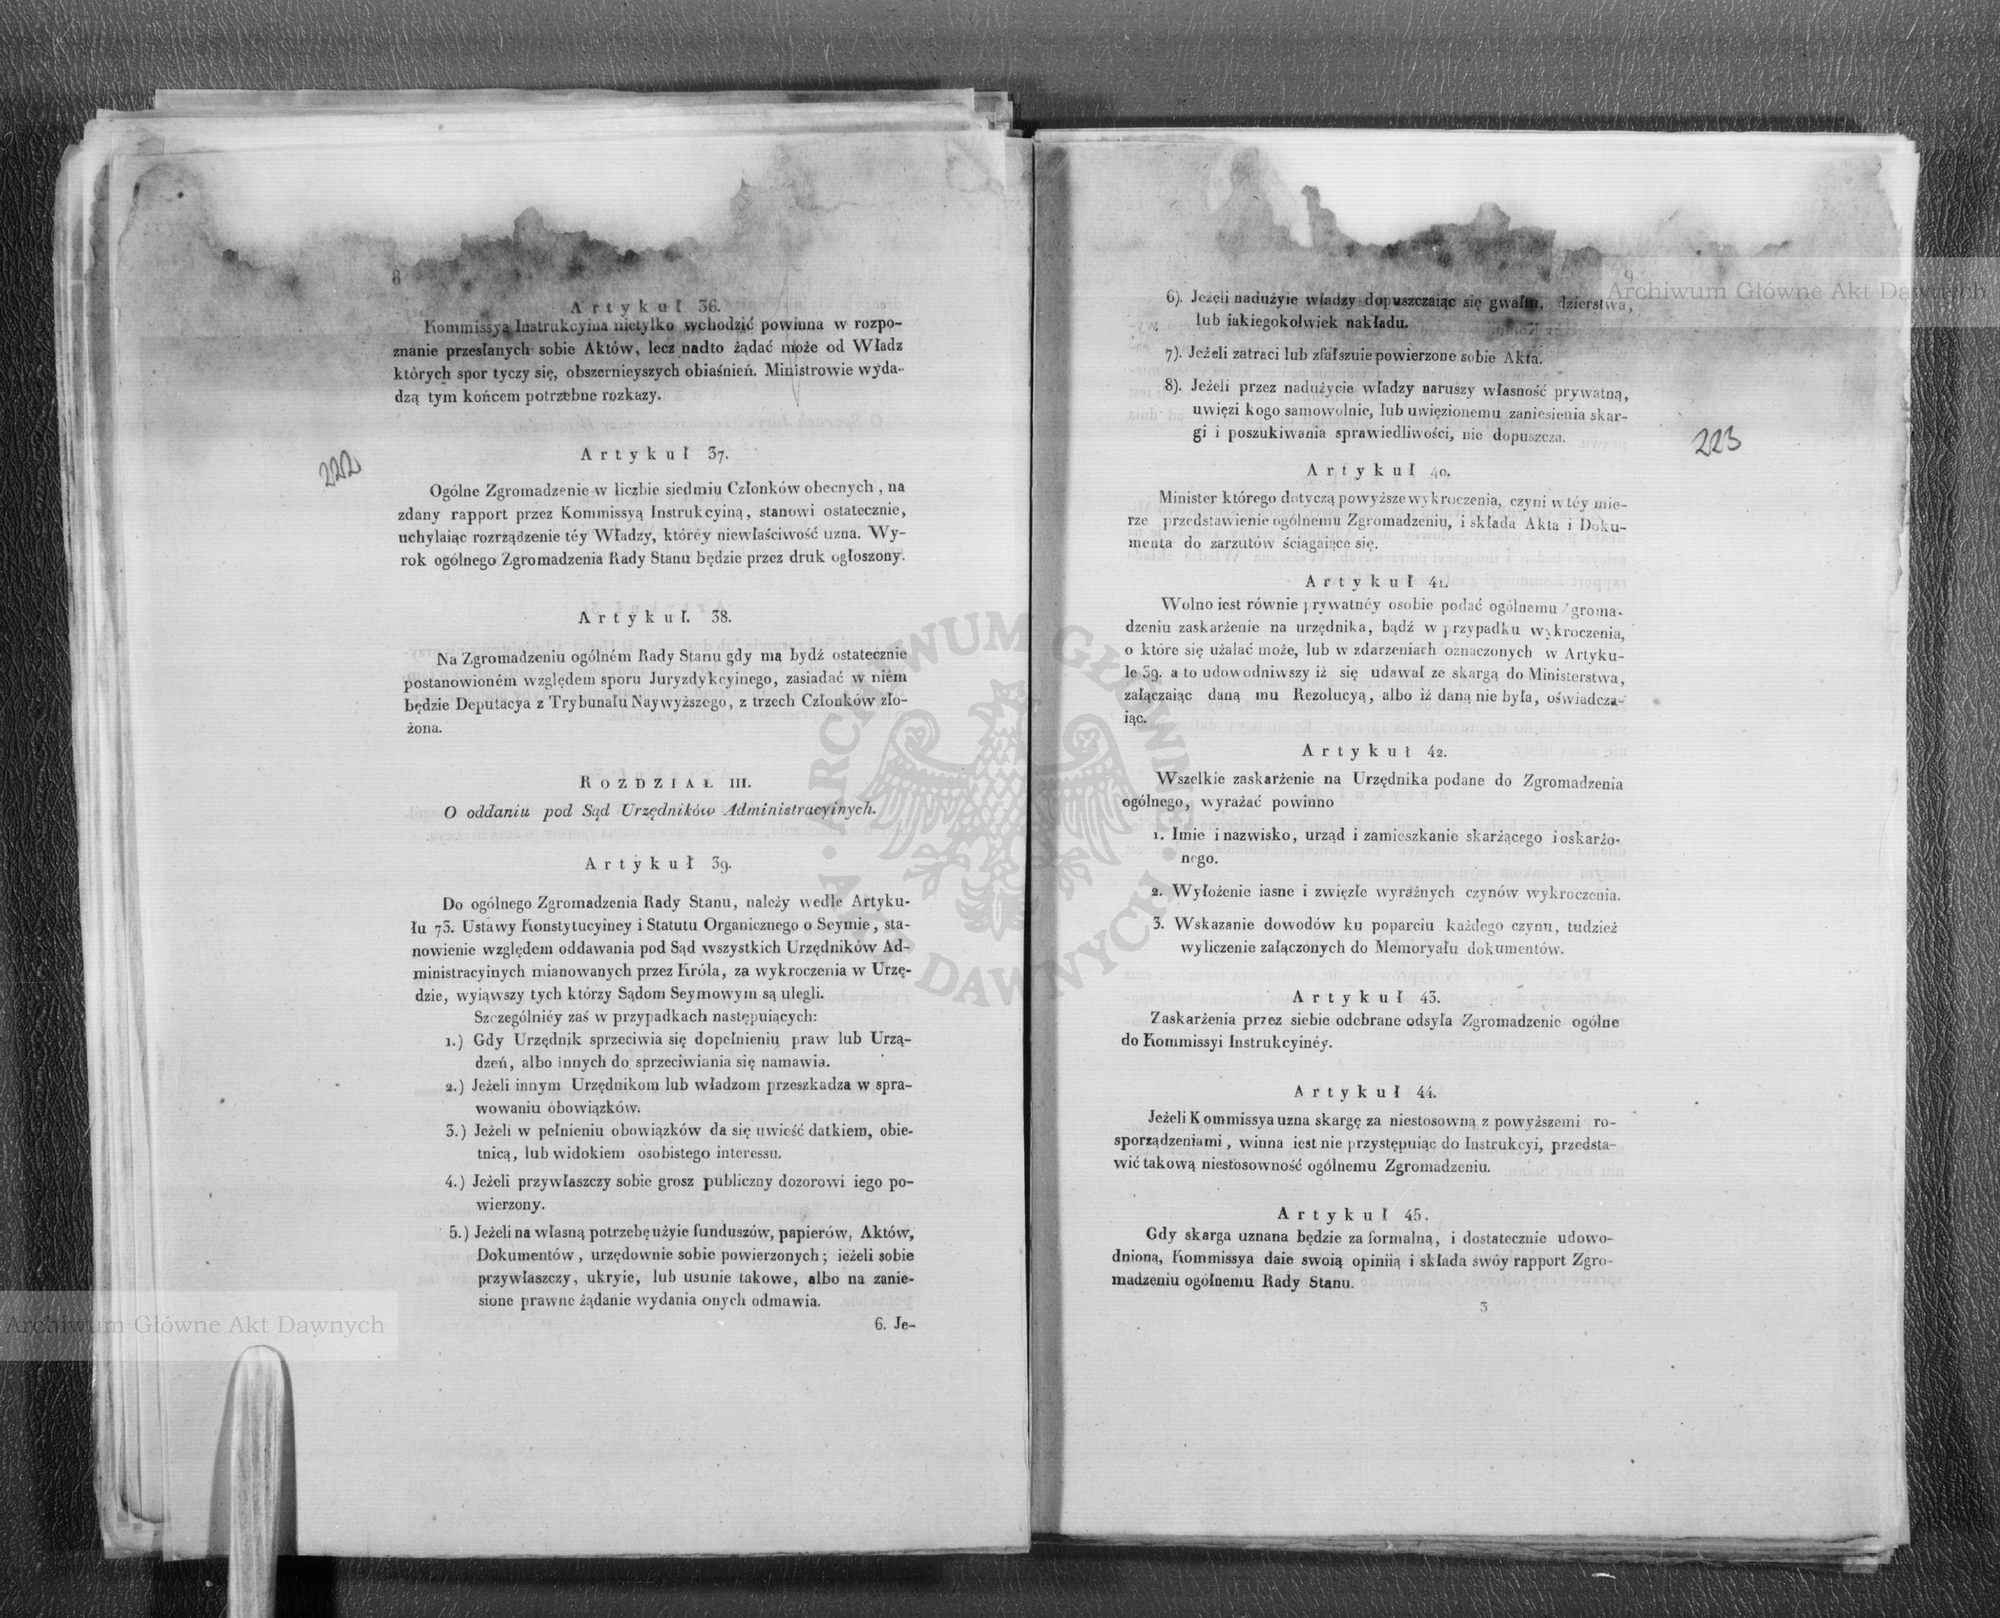 8
Artykuł 36.
Kommissya Instrukcyina nietylko wchodzić powinna w rozpo-
znanie przesłanych sobie Aktów, lecz nadto żądać może od Władz
których spor tyczy się, obszernieyszych obiaśnień. Ministrowie wyda-
dzą tym końcem potrzebne rozkazy.
222
Artykuł 37.
Ogólne Zgromadzenie w liczbie siedmiu Członków obecnych, na
zdany rapport przez Kommissyą Instrukcyiną, stanowi ostatecznie,
uchylaiąc rozrządzenie téy Władzy, któréy niewłaściwość uzna. Wy-
rok ogólnego Zgromadzenia Rady Stanu będzie przez druk ogłoszony.
Artykuł. 38.
Na Zgromadzeniu ogólném Rady Stanu gdy ma bydź ostatecznie
postanowioném względem sporu Juryzdykcyinego, zasiadać w niém
będzie Deputacya z Trybunału Naywyższego, z trzech Członków zło-
żona.
ROZDZIAŁ III.
O oddaniu pod Sąd Urzędników Administracyinych.
Artykuł 39.
Do ogólnego Zgromadzenia Rady Stanu, należy wedle Artyku-
łu 73. Ustawy Konstytucyiney i Statutu Organicznego o Seymie, sta-
nowienie względem oddawania pod Sąd wszystkich Urzędników Ad-
ministracyinych mianowanych przez Króla, za wykroczenia w Urzę-
dzie, wyiąwszy tych którzy Sądom Seymowym są ulegli.
Szczególniéy zaś w przypadkach następuiących:
1.) Gdy Urzędnik sprzeciwia się dopełnieniu praw lub Urzą-
dzeń, albo innych do sprzeciwiania się namawia.
2.) Jeżeli innym Urzędnikom lub władzom przeszkadza w spra-
wowaniu obowiązków.
3.) Jeżeli w pełnieniu obowiązków da się uwieść datkiem, obie-
tnicą, lub widokiem osobistego interessu.
4.) Jeżeli przywłaszczy sobie grosz publiczny dozorowi iego po-
wierzony.
5.) Jeżeli na własną potrzebę użyie funduszów, papierów, Aktów,
Dokumentów, urzędownie sobie powierzonych; ieżeli sobie
przywłaszczy, ukryie, lub usunie takowe, albo na zanie-
sione prawne żądanie wydania onych odmawia.
6. Je-
Archiwum Główne Akt Dawnych
9
Archiwum Główne Akt Dawnych
6). Jeżeli nadużyie władzy dopuszczaiąc się gwałtu, zdzierstwa,
lub iakiegokolwiek nakładu.
7). Jeżeli zatraci lub zfałszuie powierzone sobie Akta.
8). Jeżeli przez nadużycie władzy naruszy własność prywatną,
uwięzi kogo samowolnie, lub uwięzionemu zaniesienia skar-
gi i poszukiwania sprawiedliwości, nie dopuszcza.
223
Artykuł 40.
Minister którego dotyczą powyższe wykroczenia, czyni w téy mie-
rze przedstawienie ogólnemu Zgromadzeniu, i składa Akta i Doku-
menta do zarzutów ściągaiące się.
Artykuł 41.
Wolno iest równie prywatnéy osobie podać ogólnemu Zgroma-
dzeniu zaskarżenie na urzędnika, bądź w przypadku wykroczenia,
o które się użalać może, lub w zdarzeniach oznaczonych w Artyku-
le 39. a to udowodniwszy iż się udawał ze skargą do Ministerstwa,
załączaiąc daną mu Rezolucyą, albo iż daną nie była, oświadcza-
iąc.
Artykuł 42.
Wszelkie zaskarżenie na Urzędnika podane do Zgromadzenia
ogólnego, wyrażać powinno
1. Imie i nazwisko, urząd i zamieszkanie skarżącego i oskarżo-
nego.
2. Wyłożenie iasne i zwięzłe wyraźnych czynów wykroczenia.
3. Wskazanie dowodów ku poparciu każdego czynu, tudzież
wyliczenie załączonych do Memoryału dokumentów.
Artykuł 43.
Zaskarżenia przez siebie odebrane odsyła Zgromadzenie ogólne
do Kommissyi Instrukcyinéy.
Artykuł 44.
Jeżeli Kommissya uzna skargę za niestosowną z powyższemi ro-
sporządzeniami, winna iest nie przystępuiąc do Instrukcyi, przedsta-
wić takową niestosowność ogólnemu Zgromadzeniu.
Artykuł 45.
Gdy skarga uznana będzie za formalną, i dostatecznie udowo-
dnioną, Kommissya daie swoią opiniią i składa swóy rapport Zgro-
madzeniu ogólnemu Rady Stanu.
3
ARCHIWUM GŁÓWNE AKT DAWNYCH